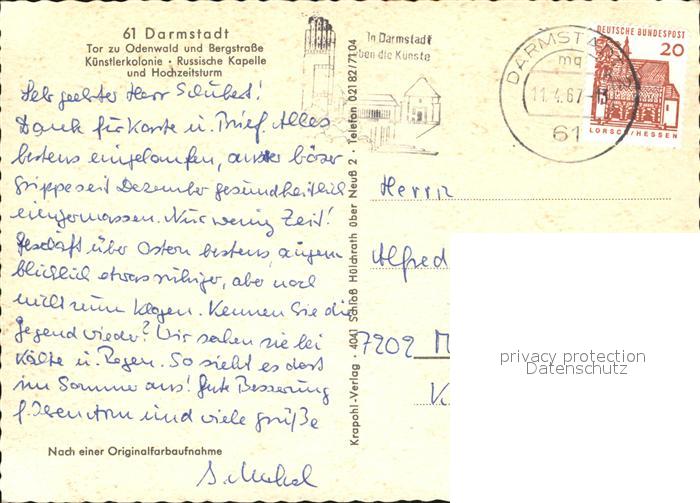 61 Darmstadt
Tor zu Odenwald und Bergstraße
Künstlerkolonie · Russische Kapelle
und Hochzeitsturm
Sehr geehrter Herr Schubert!
Dank für Karte u. Brief. Alles
bestens eingelaufen, ausser böser
Grippe seit Dezember gesundheitlich
einigermassen. Nur wenig Zeit!
Geschäft über Ostern bestens, augen
blicklich etwas ruhiger, aber noch
nicht zum klagen. Kennen Sie die
Gegend wieder? Wir sahen sie bei
Kälte u. Regen. So sieht es dort
im Sommer aus! Gute Besserung
f. Ihren Arm und viele Grüße
Nach einer Originalfarbaufnahme
Krapohl-Verlag · 4041 Schloß Hülchrath über Neuß 2 · Telefon 02182/7104
In Darmstadt
leben die Künste
DARMSTADT
mq
11.4.67-13
61
DEUTSCHE BUNDESPOST
20
LORSCH/HESSEN
Herrn
Alfred
7202 M
privacy protection
Datenschutz